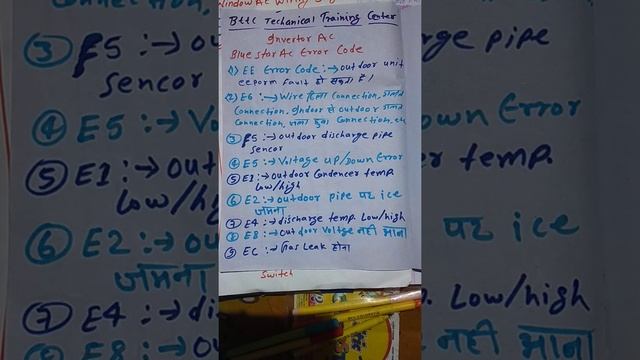 Window AC Wiring
Bttc Techanical Training Center
Invertor AC
Blue star Ac Error Code
1) EE Error Code :→ outdoor unit
eeporm fault हो सकता है।
(2) E6 :→ Wire ढिला Connection, गलत
Connection, Indoor से outdoor गलत
Connection, जला हुवा Connection, etc
③ F5 :→ outdoor discharge pipe
sencor
④ E5 :→ Voltage up/Down Error
⑤ E1 :→ outdoor Condencer temp.
low/high
⑥ E2 :→ outdoor pipe पर ice
जमना
⑦ E4 :→ discharge temp. Low/high
⑧ E8 :→ outdoor voltge नही आना
⑨ EC :→ Gas Leak होना
Switch
③ F5 :→ out
sencor
④ E5 :→ Vo
⑤ E1 :→ out
low/h
⑥ E2 :→ out
जमना
⑦ E4 :→ dis
⑧ E8 :→ out
ge pipe
own Error
temp.
पर ice
Low/high
नही आना